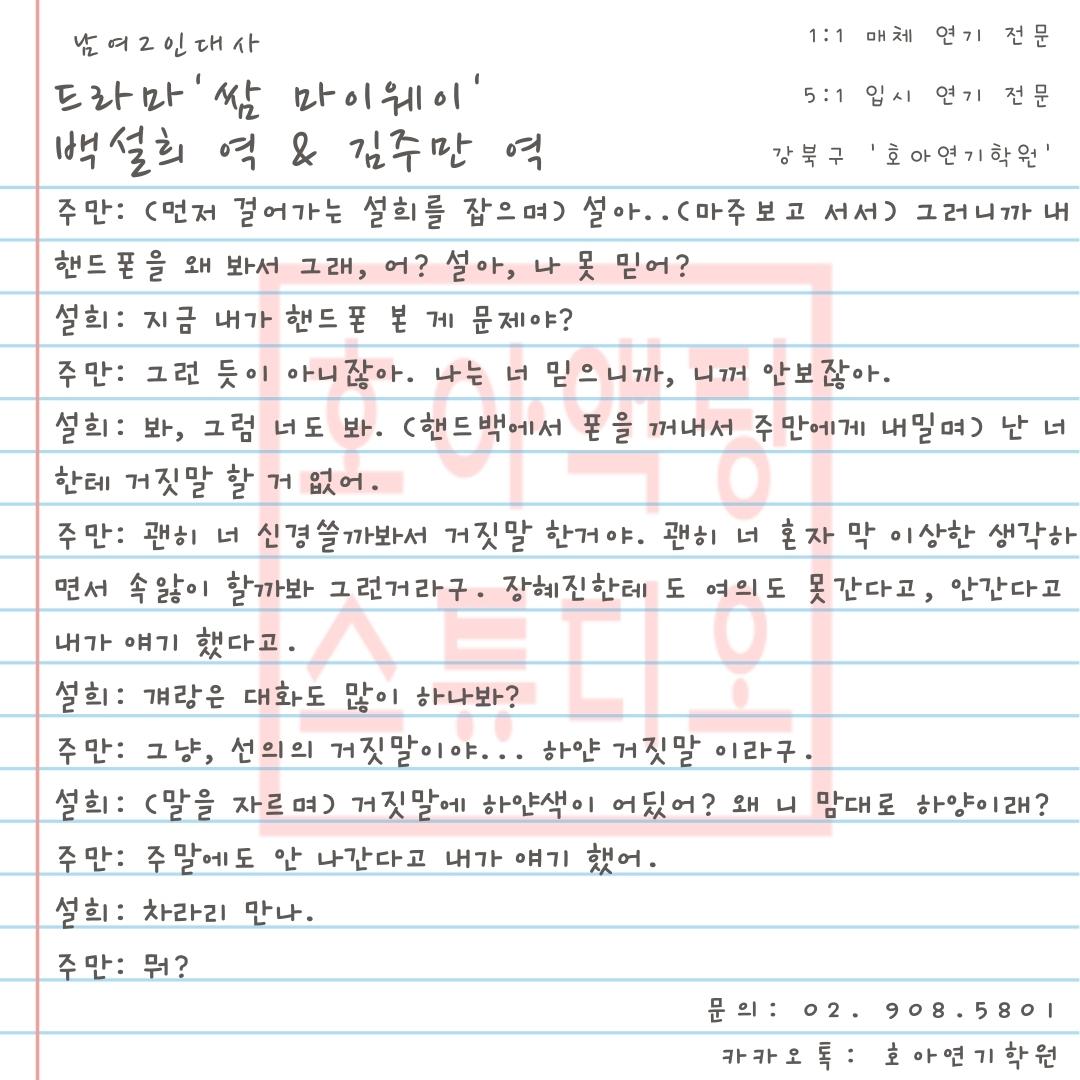 남여2인대사
드라마'쌈 마이웨이'
백설희 역 & 김주만 역
1:1 매체 연기 전문
5:1 입시 연기 전문
강북구 '호아연기학원'
주만: (먼저 걸어가는 설희를 잡으며) 설아..(마주보고 서서) 그러니까 내
핸드폰을 왜 봐서 그래, 어? 설아, 나 못 믿어?
설희: 지금 내가 핸드폰 본 게 문제야?
주만: 그런 듯이 아니잖아. 나는 너 믿으니까, 니꺼 안보잖아.
설희: 봐, 그럼 너도 봐. (핸드백에서 폰을 꺼내서 주만에게 내밀며) 난 너
한테 거짓말 할 거 없어.
주만: 괜히 너 신경쓸까봐서 거짓말 한거야. 괜히 너 혼자 막 이상한 생각하
면서 속앓이 할까봐 그런거라구. 장혜진한테 도 여의도 못간다고, 안간다고
내가 얘기 했다고.
설희: 걔랑은 대화도 많이 하나봐?
주만: 그냥, 선의의 거짓말이야... 하얀 거짓말 이라구.
설희: (말을 자르며) 거짓말에 하얀색이 어딨어? 왜 니 맘대로 하양이래?
주만: 주말에도 안 나간다고 내가 얘기 했어.
설희: 차라리 만나.
주만: 뭐?
문의: 02. 908.5801
카카오톡: 호아연기학원
호아액팅
스튜디오